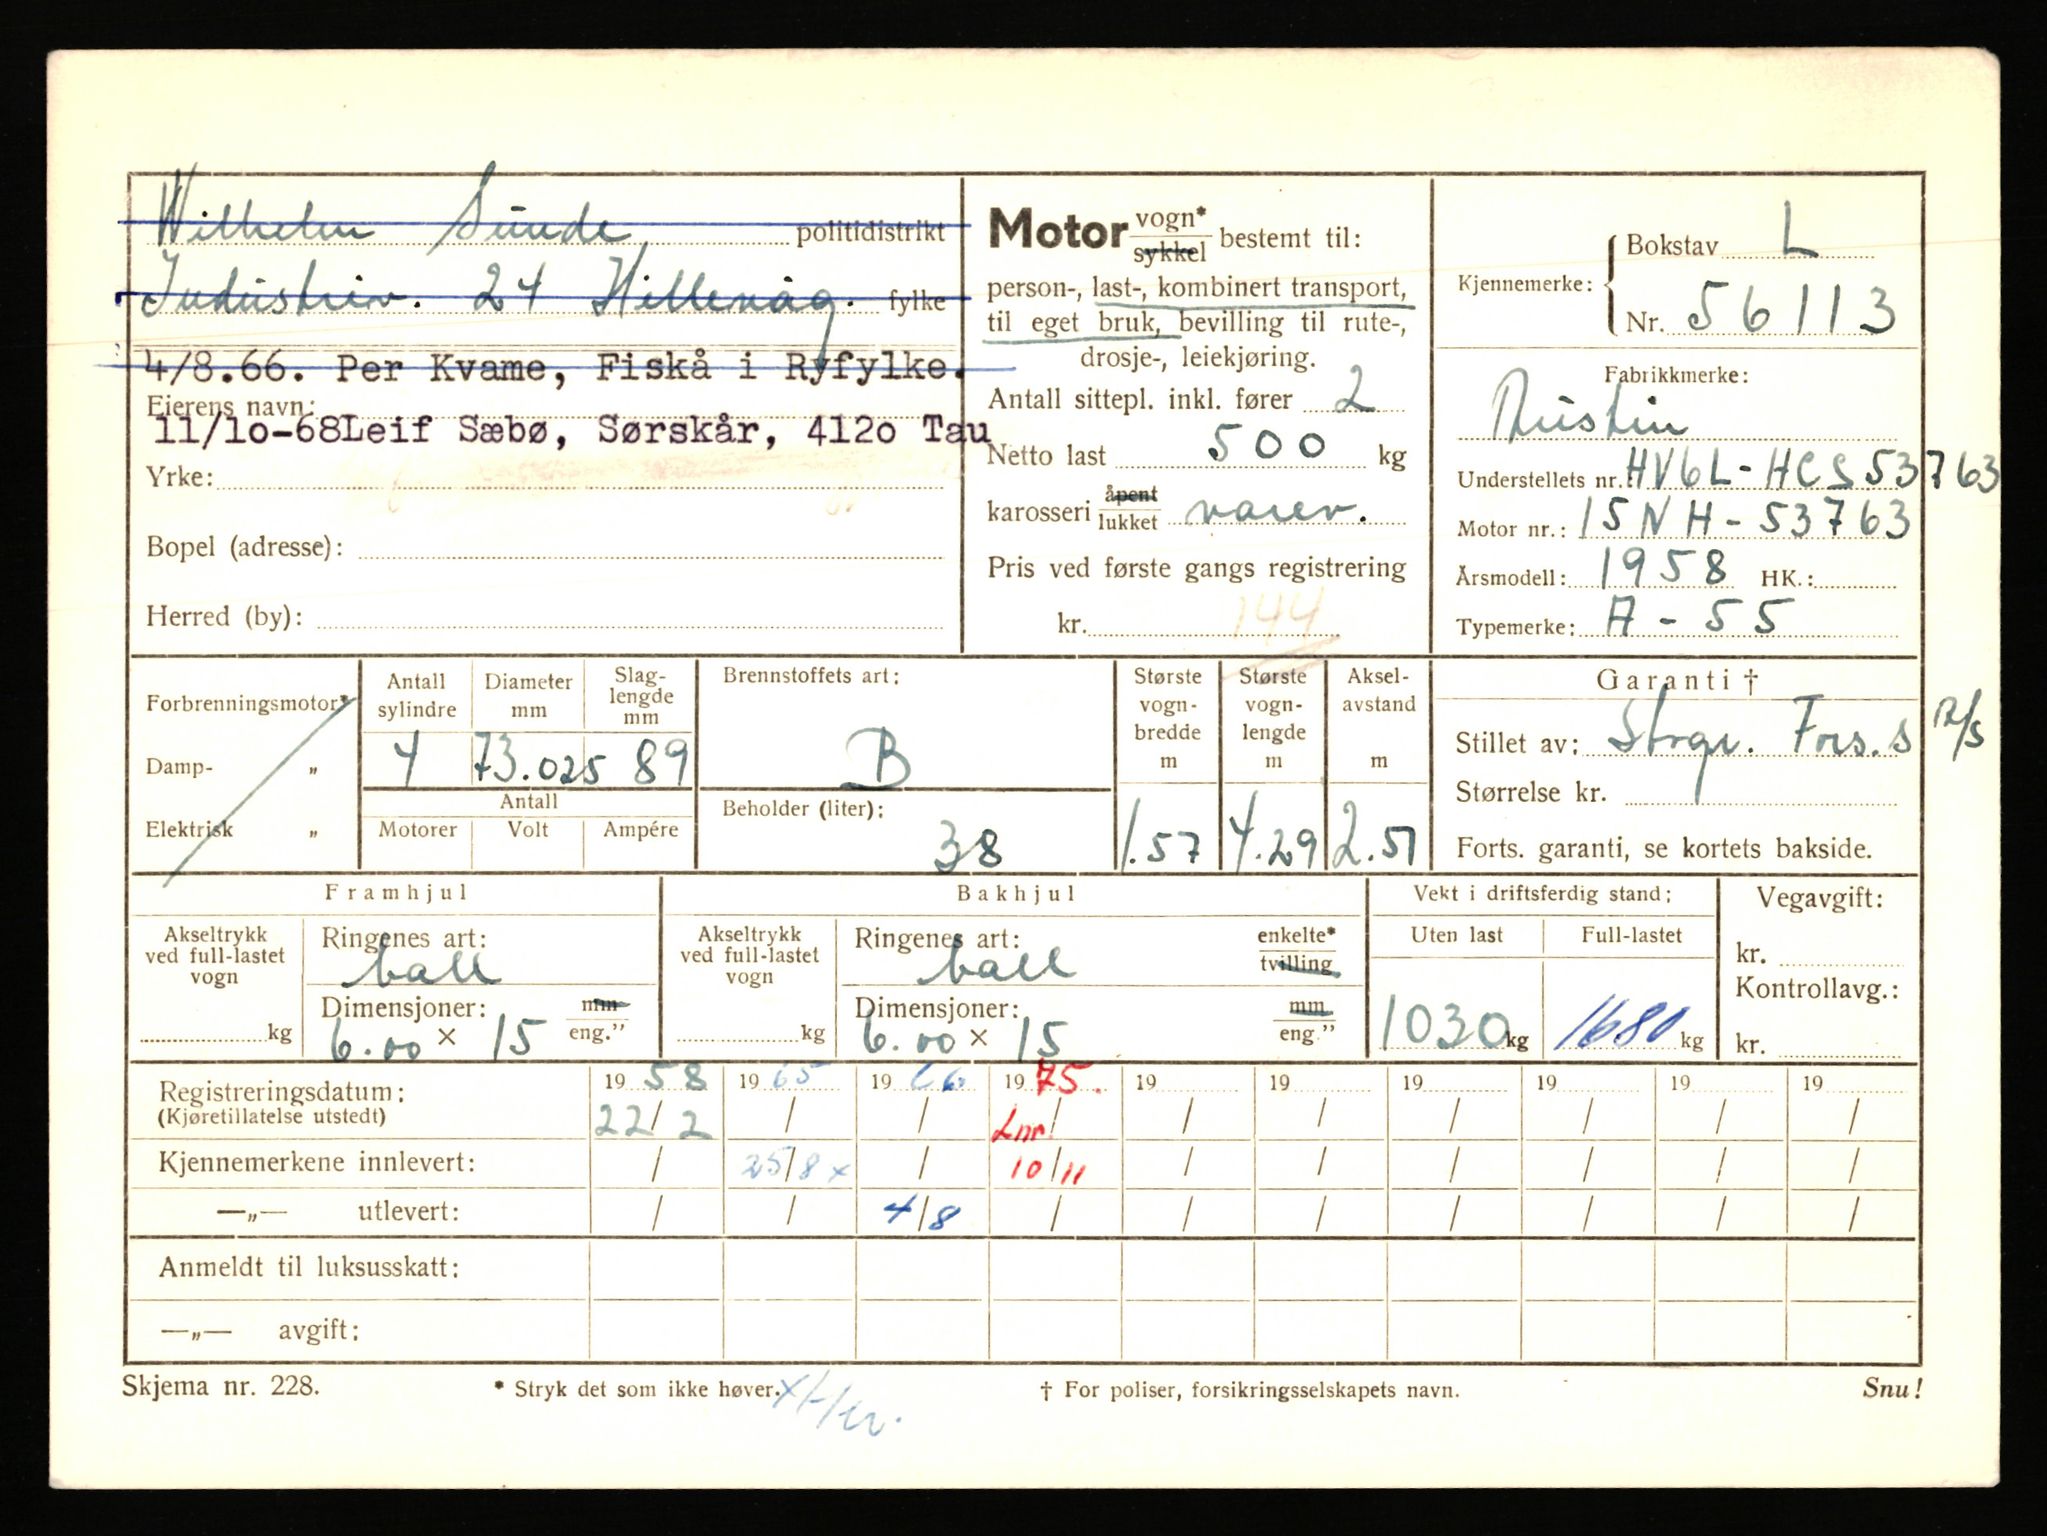 Wilhelm Sunde politidistrikt
Industriv. 24 Hillevåg. fylke
4/8.66. Per Kvame, Fiskå i Ryfylke.
Eierens navn:
11/10-68 Leif Sæbø, Sørskår, 4120 Tau
Yrke:
Bopel (adresse):
Herred (by):
Motor vogn* sykkel bestemt til:
person-, last-, kombinert transport,
til eget bruk, bevilling til rute-,
drosje-, leiekjøring.
Antall sittepl. inkl. fører 2
Netto last 500 kg
karosseri åpent lukket varev.
Pris ved første gangs registrering
kr. 144
Kjennemerke: Bokstav L
Nr. 56113
Fabrikkmerke:
Austin
Understellets nr. HV6L-HCS53763
Motor nr.: 15NH-53763
Årsmodell: 1958 HK.:
Typemerke: A-55
Forbrenningsmotor*
Damp- „
Elektrisk „
Antall sylindre
4
Diameter mm
73.025
Slaglengde mm
89
Antall
Motorer Volt Ampére
Brennstoffets art:
B
Beholder (liter):
38
Største vognbredde m
1.57
Største vognlengde m
4.29
Akselavstand m
2.51
Garanti †
Stillet av: Storgr. Fors.s R/S
Størrelse kr.
Forts. garanti, se kortets bakside.
Framhjul
Akseltrykk ved full-lastet vogn
kg
Ringenes art:
ball
Dimensjoner: mm
6.00 × 15 eng."
Bakhjul
Akseltrykk ved full-lastet vogn
kg
Ringenes art: enkelte*
ball tvilling
Dimensjoner: mm
6.00 × 15 eng."
Vekt i driftsferdig stand:
Uten last Full-lastet
1030 kg 1680 kg
Vegavgift:
kr.
Kontrollavg.:
kr.
Registreringsdatum: 19 58 19 65 19 66 19 75. 19 19 19 19 19 19
(Kjøretillatelse utstedt) 22/2 / / Lnr. / / / / / / /
Kjennemerkene innlevert: / 25/8 x / 10/11 / / / / / /
—„— utlevert: / / 4/8 / / / / / / /
Anmeldt til luksusskatt:
—„— avgift:
Skjema nr. 228. * Stryk det som ikke høver. † For poliser, forsikringsselskapets navn. Snu!